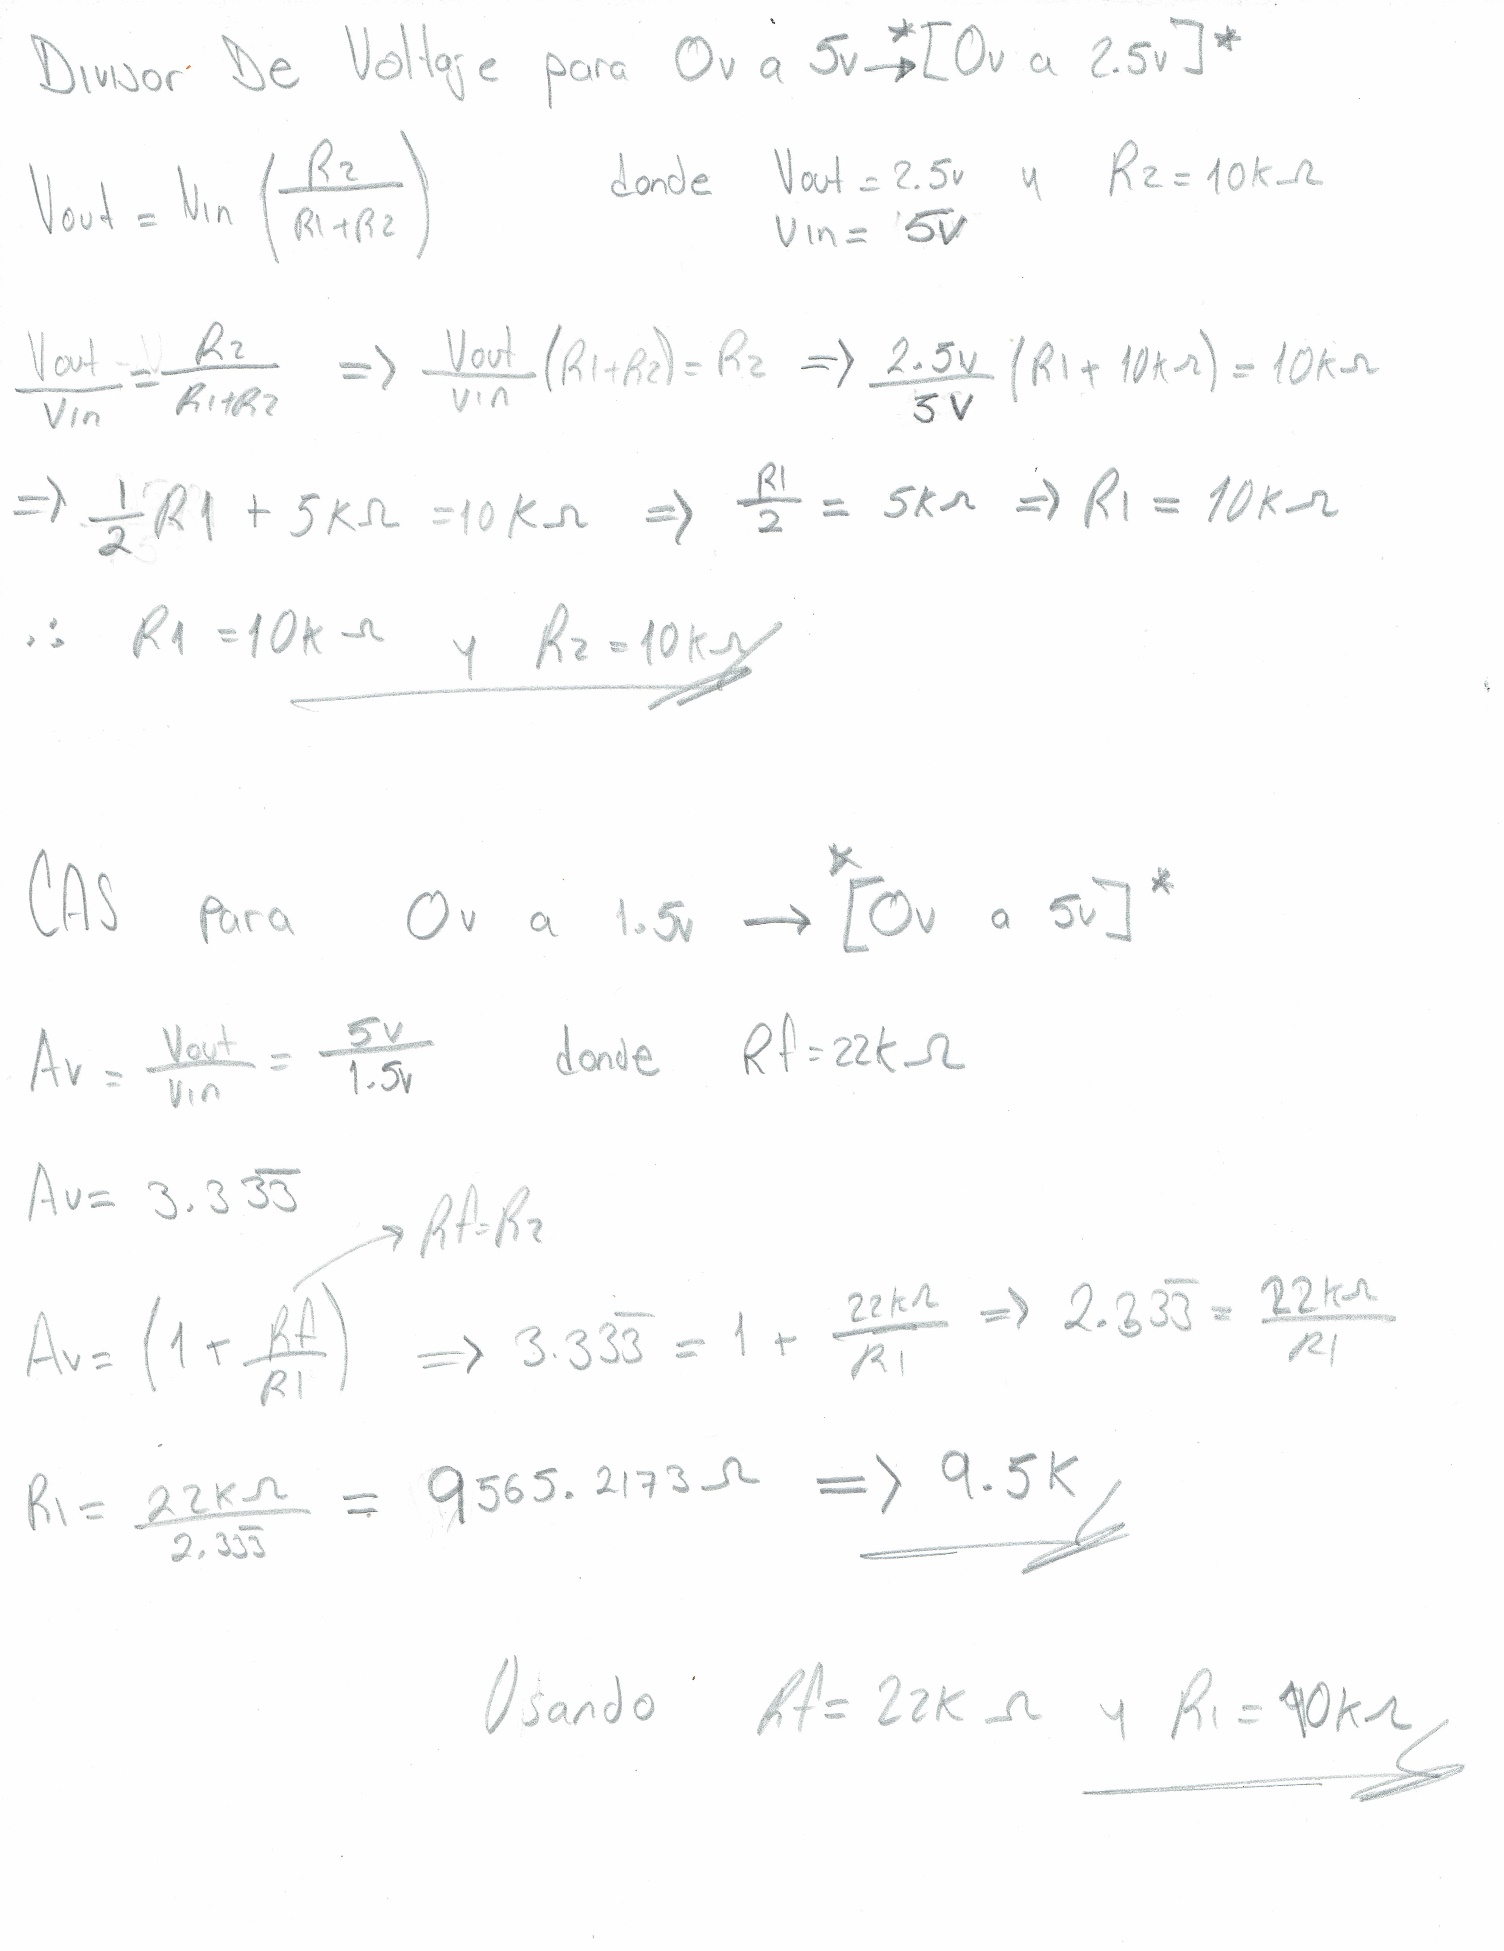 Divisor De Voltaje para 0v a 5v →*[0v a 2.5v]*
Vout = Vin (R2 / (R1+R2)) donde Vout = 2.5v y R2 = 10kΩ
Vin = 5V
Vout/Vin = R2/(R1+R2) => Vout/Vin (R1+R2) = R2 => 2.5v/5V (R1 + 10kΩ) = 10kΩ
=> 1/2 R1 + 5kΩ = 10kΩ => R1/2 = 5kΩ => R1 = 10kΩ
∴ R1 = 10kΩ y R2 = 10kΩ
CAS para 0v a 1.5v → *[0v a 5v]*
Av = Vout/Vin = 5v/1.5v donde Rf = 22kΩ
Av = 3.33̅3̅
Rf = R2
Av = (1 + Rf/R1) => 3.33̅3̅ = 1 + 22kΩ/R1 => 2.33̅3̅ = 22kΩ/R1
R1 = 22kΩ/2.33̅3̅ = 9565.2173Ω => 9.5K
Usando Rf = 22kΩ y R1 = 10kΩ